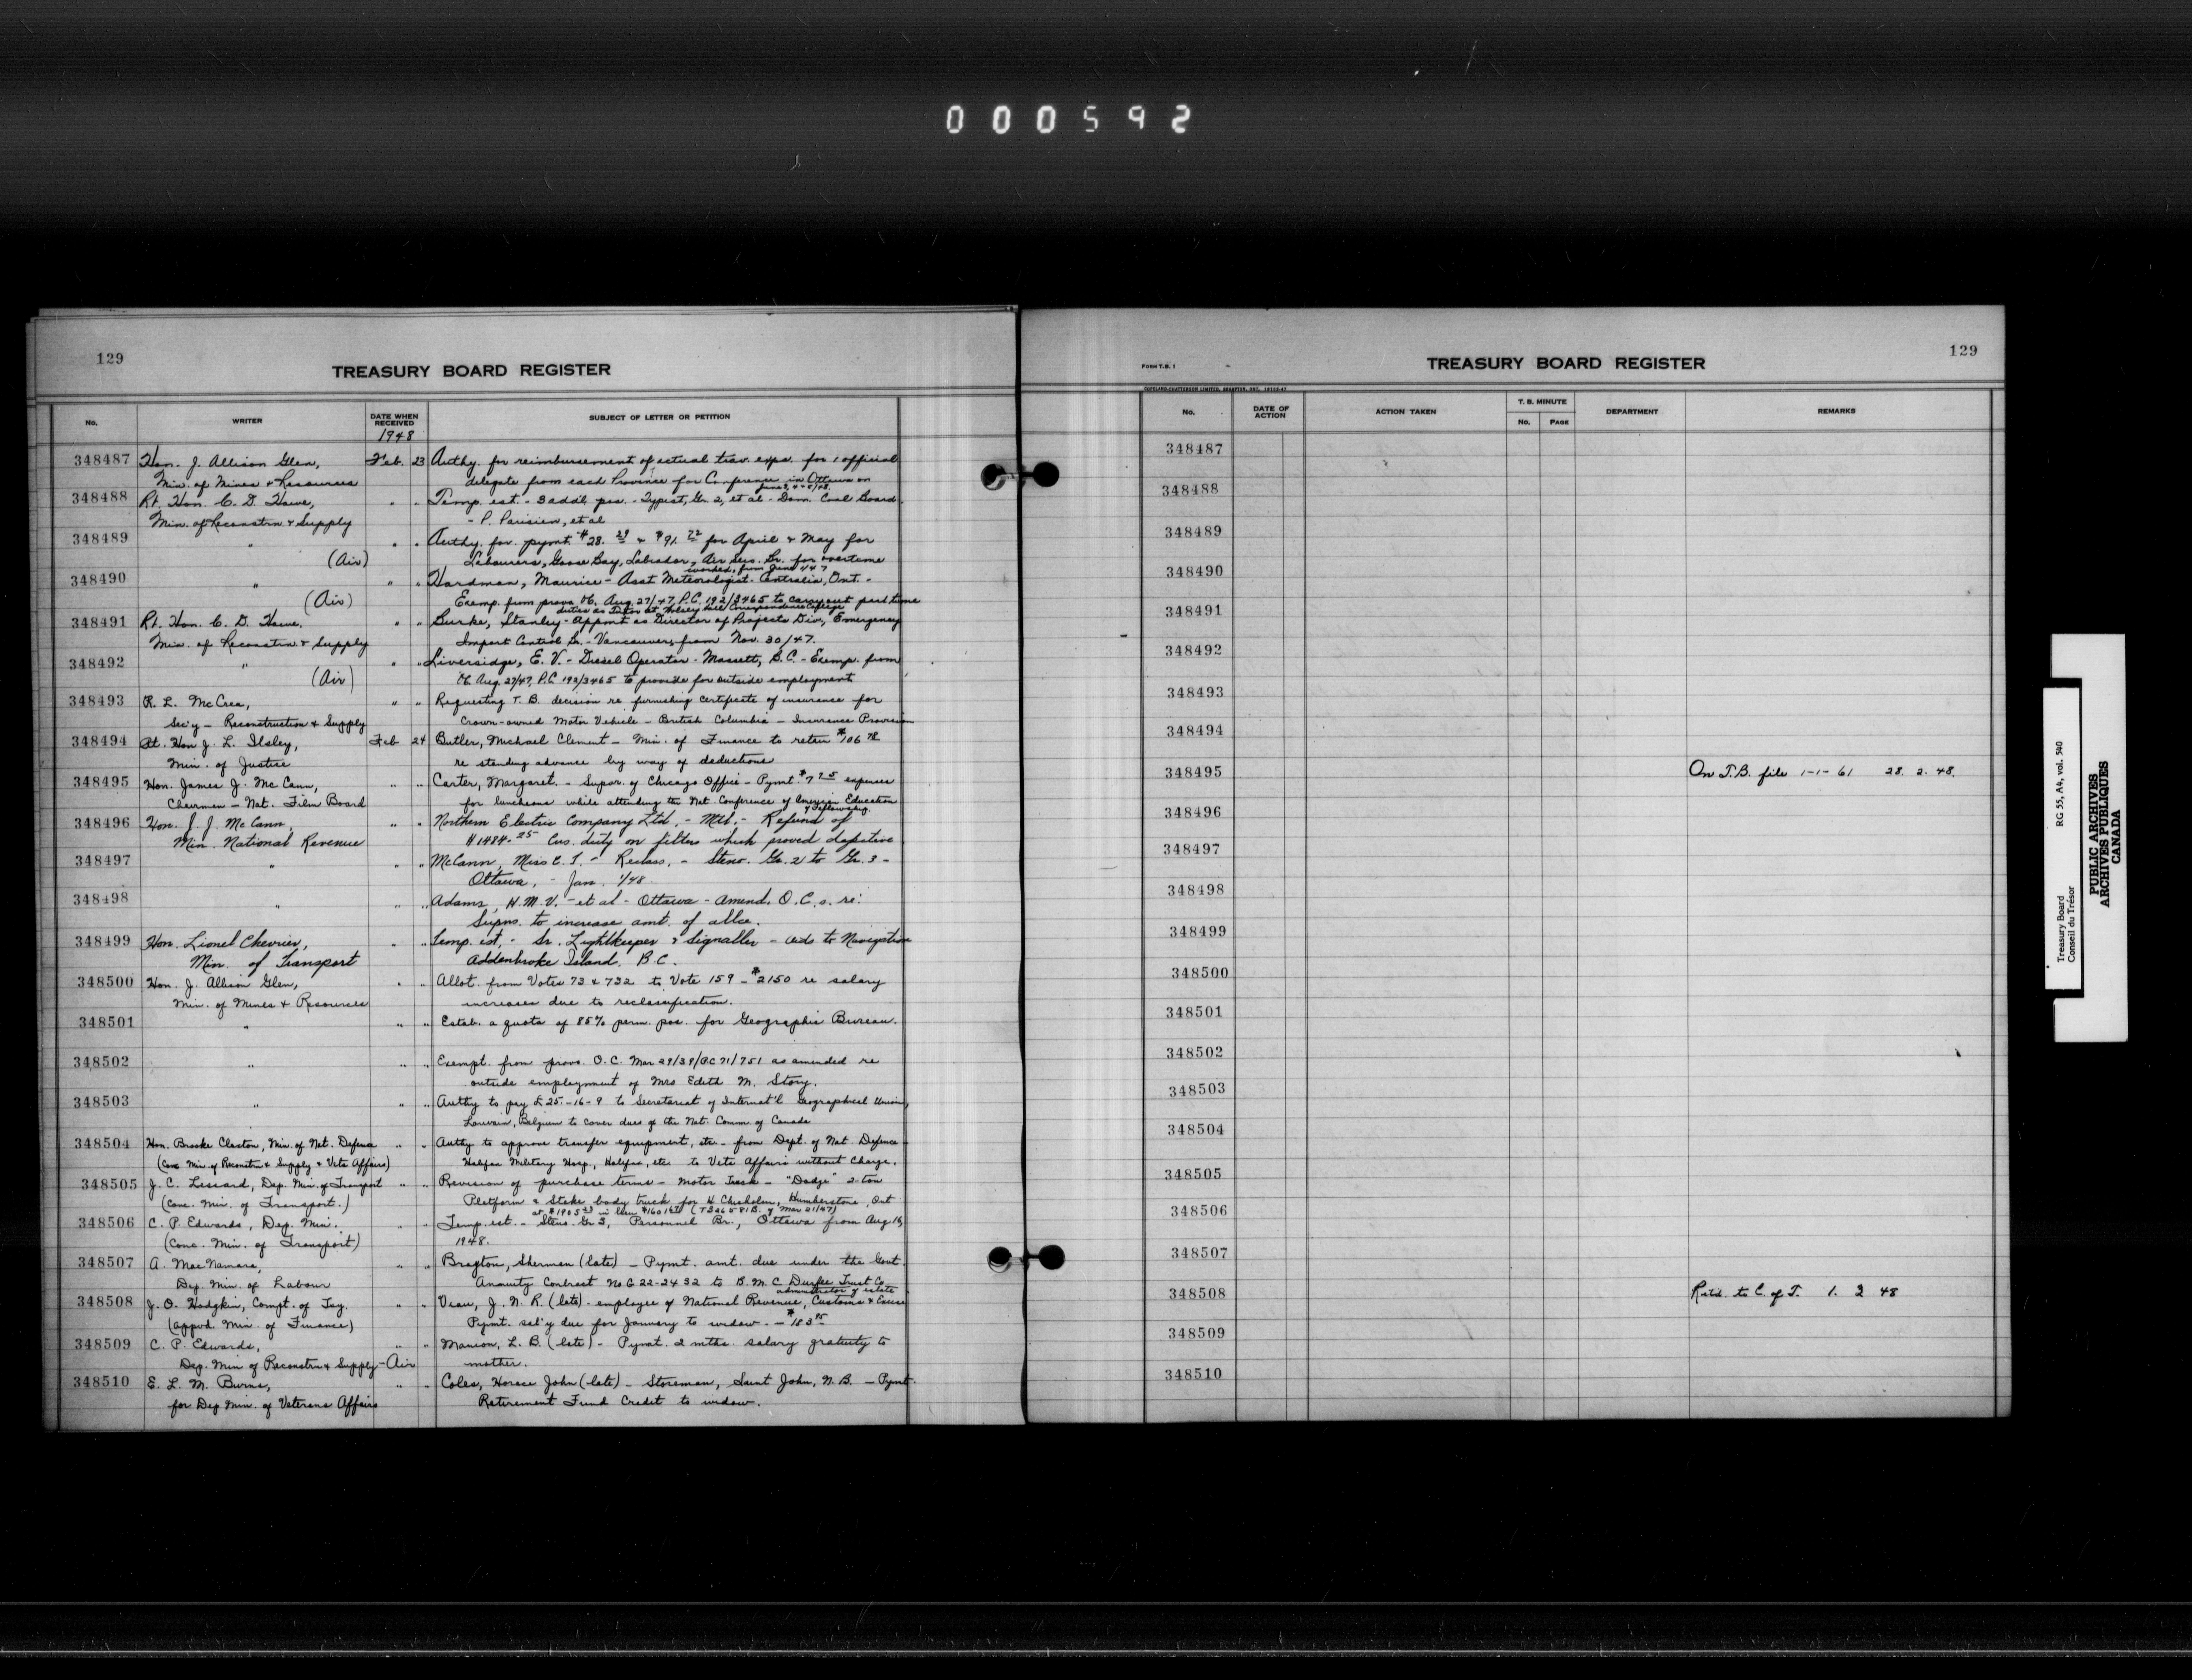 000592
129
TREASURY BOARD REGISTER
No. WRITER DATE WHEN RECEIVED SUBJECT OF LETTER OR PETITION
1948
348487 Hon. J. Allison Glen, Feb. 23 Authy. for reimbursement of actual trav. exps. for 1 official
Min. of Mines & Resources delegate from each Province for Conference in Ottawa on
348488 Rt. Hon. C. D. Howe, " " Temp. est. - 3 addtl. pos. - Typist, Gr. 2, et al - Dom. Coal Board
Min. of Reconstrn & Supply - P. Parisien, et al
348489 " " " Authy. for pymt. $28. & $91. for April & May for
(Air) Labourers, Goose Bay, Labrador, Air Serv. Br. for overtime
worked, from June 1/47
348490 " " " Hardman, Maurice - Asst Meteorologist - Centralia, Ont. -
(Air) Exemp. from provs. OC. Aug. 27/47, P.C. 192/3465 to carry out part time
duties as Tutor at Wolsey Hall Correspondence College
348491 Rt. Hon. C. D. Howe, " " Burke, Stanley - Appmt as Director of Projects Div., Emergency
Min. of Reconstrn & Supply Import Control Br. - Vancouver, from Nov. 30/47.
348492 " " " Liversidge, E. V. - Diesel Operator - Massett, B.C. - Exemp. from
(Air) OC Aug. 27/47, P.C. 192/3465 to provide for outside employment
348493 R. L. McCrea, " " Requesting T. B. decision re furnishing certificate of insurance for
Sec'y - Reconstruction & Supply Crown-owned Motor Vehicle - British Columbia - Insurance Provision
348494 Rt. Hon J. L. Ilsley, Feb 24 Butler, Michael Clement - Min. of Finance to retain $106 78
Min. of Justice re standing advance by way of deductions
348495 Hon. James J. McCann, " " Carter, Margaret. - Supvr. of Chicago Office - Pymt $7 75 expenses
Chairman - Nat. Film Board for luncheons while attending the Nat. Conference of American Education
Fellowship.
348496 Hon. J. J. McCann, " " Northern Electric Company Ltd. - Mtl. - Refund of
Min. National Revenue $1484.25 Cus. duty on filters which proved defective
348497 " " " McCann, Miss E. T. - Reclass. - Steno. Gr. 2 to Gr. 3 -
Ottawa, - Jan. 1/48
348498 " " " Adams, H. M. V. - et al - Ottawa - Amend. O.C.s. re:
Supns. to increase amt. of allce.
348499 Hon. Lionel Chevrier, " " Temp. est. - Sr. Lightkeeper & Signaller - Aids to Navigation
Min. of Transport Addenbroke Island, B.C.
348500 Hon. J. Allison Glen, " " Allot. from Votes 73 & 732 to Vote 159 - $2150 re salary
Min. of Mines & Resources increases due to reclassification.
348501 " " " Estab. a quota of 85% perm. pos. for Geographic Bureau.
348502 " " " Exempt. from provs. O.C. Mar 29/39/PC 71/751 as amended re
outside employment of Mrs Edith M. Story.
348503 " " " Authy to pay £25-16-9 to Secretariat of Internat'l Geographical Union,
Louvain, Belgium to cover dues of the Nat. Comm. of Canada
348504 Hon. Brooke Claxton, Min. of Nat. Defence " " Authy to approve transfer equipment, etc - from Dept. of Nat. Defence
(Conc Min. of Reconstrn & Supply & Vets Affairs) Halifax Military Hosp., Halifax, etc. to Vets Affairs without charge.
348505 J. C. Lessard, Dep. Min. of Transport " " Revision of purchase terms - Motor Truck - "Dodge" 2-ton
(Conc. Min. of Transport.) Platform & Stake body truck for H. Chisholm, Humberstone, Ont
348506 C. P. Edwards, Dep. Min. " " Temp. est. - Steno. Gr 3, Personnel Br., Ottawa from Aug 16,
(Conc. Min. of Transport) 1948.
348507 A. MacNamara, " " Bragton, Sherman (late) - Pymt. amt. due under the Govt.
Dep. Min. of Labour Annuity Contract No G 22-2432 to B. M. C. Durfee Trust Co.
administrator of estate
348508 J. O. Hodgkin, Compt. of Tsy. " " Veau, J. N. R. (late) - employee of National Revenue, Customs & Excise
(appvd. Min. of Finance) Pymt. sal'y due for January to widow. - $183 95
348509 C. P. Edwards, " " Manion, L. B. (late) - Pymt. 2 mths. salary gratuity to
Dep. Min of Reconstrn & Supply - Air mother.
348510 E. L. M. Burns, " " Coles, Horace John (late) - Storeman, Saint John, N.B. - Pymt.
for Dep Min. of Veterans Affairs Retirement Fund Credit to widow.
FORM T.B. 1
TREASURY BOARD REGISTER
129
No. DATE OF ACTION ACTION TAKEN T. B. MINUTE No. PAGE DEPARTMENT REMARKS
348487
348488
348489
348490
348491
348492
348493
348494
348495 On T.B. file 1-1-61 28. 2. 48.
348496
348497
348498
348499
348500
348501
348502
348503
348504
348505
348506
348507
348508 Retd. to C. of T. 1. 3 48
348509
348510
Treasury Board RG 55, A4, vol. 540
Conseil du Trésor
PUBLIC ARCHIVES
ARCHIVES PUBLIQUES
CANADA